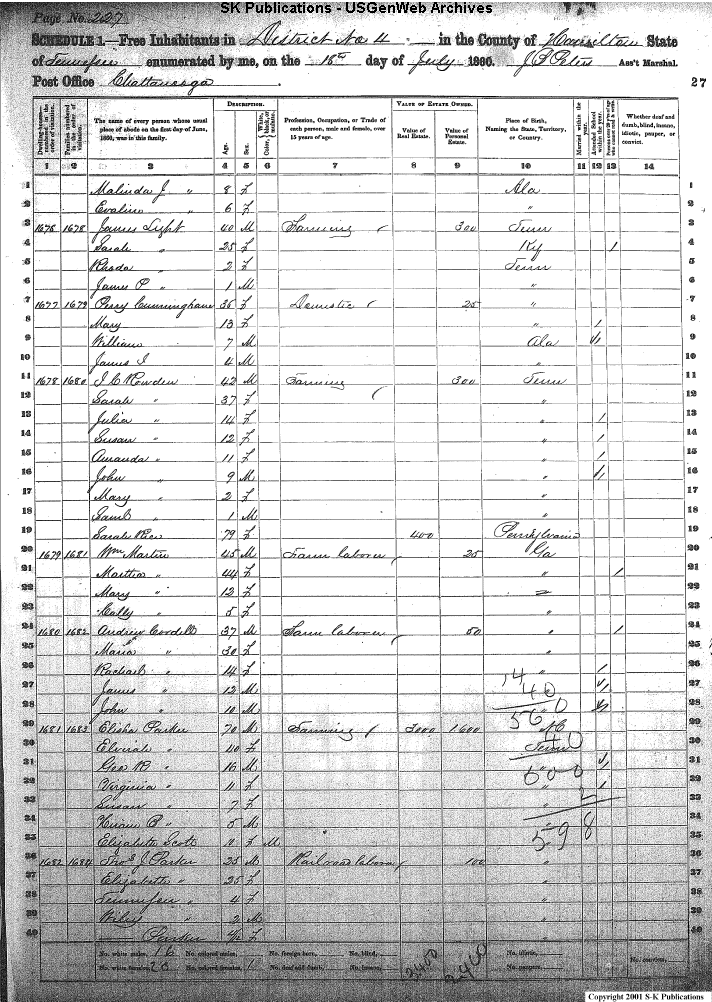 SK Publications - USGenWeb Archives
Page No. 227
SCHEDULE 1.—Free Inhabitants in District No 4 in the County of Hamilton State
of Tennessee enumerated by me, on the 16th day of July 1860. Ass't Marshal.
Post Office Chattanooga 27
Dwelling-houses numbered in the order of visitation.
Families numbered in the order of visitation.
The name of every person whose usual place of abode on the first day of June, 1860, was in this family.
DESCRIPTION.
Age.
Sex.
Color, White, black, or mulatto.
Profession, Occupation, or Trade of each person, male and female, over 15 years of age.
VALUE OF ESTATE OWNED.
Value of Real Estate.
Value of Personal Estate.
Place of Birth, Naming the State, Territory, or Country.
Married within the year.
Attended School within the year.
Whether deaf and dumb, blind, insane, idiotic, pauper, or convict.
1 2 3 4 5 6 7 8 9 10 11 12 13 14
1 Malinda J " 8 f Ala 1
2 Evaline " 6 f " 2
3 1676 1678 James Light 40 M Farming 300 Tenn 3
4 Sarah " 25 f Ky / 4
5 Rhoda " 2 f Tenn 5
6 James P " 1 M " 6
7 1677 1679 Perry Cunningham 36 f Domestic 25 " 7
8 Mary 13 f " / 8
9 William 7 M Ala / 9
10 James 4 M " 10
11 1678 1680 J C Rowden 42 M Farming 300 Tenn 11
12 Sarah " 37 f " 12
13 Julia " 14 f " / 13
14 Susan " 12 f " / 14
15 Amanda " 11 f " / 15
16 John " 9 M " / 16
17 Mary " 2 f " 17
18 Saml " 1 M " 18
19 Sarah Rice 79 f 400 Pennsylvania 19
20 1679 1681 Wm Martin 45 M Farm laborer 25 Ga 20
21 Martha " 44 f " / 21
22 Mary " 12 f " 22
23 Cally " 5 f " 23
24 1680 1682 Andrew Cordell 37 M Farm laborer 50 " / 24
25 Maria " 30 f " 25
26 Rachael " 14 f " / 26
27 James " 12 M / 27
28 John " 10 M / 28
29 1681 1683 Elisha Parker 70 M Farming 3000 1,600 NC 29
30 Elvirah " 40 f Tenn 30
31 Geo " 16 M / 31
32 Virginia " 11 f " / 32
33 Susan " 7 f " 33
34 Hiram P " 5 M " 34
35 Elizabeth Scott f M " 35
36 1682 1684 Thos J Parker 25 M Railroad laborer 100 " 36
37 Elizabeth " 25 f " 37
38 Tennessee " 4 f " 38
39 " 2 M " 39
40 —— Parker f " 40
14
40
560
40
600
2
598
No. white males, 16 No. colored males, No. foreign born, No. blind, 3400 2460 No. idiotic, No. convicts,
No. white females, No. colored females, 1 No. deaf and dumb, No. insane, No. paupers,
Copyright 2001 S-K Publications